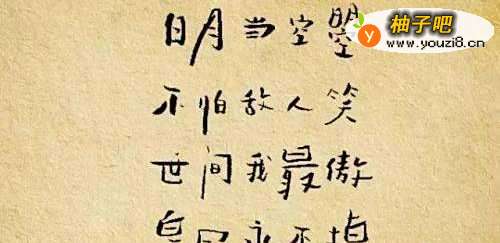 柚子吧
www.youzi8.cn
日月当空曌
不怕敌人笑
世间我最傲
永不掉